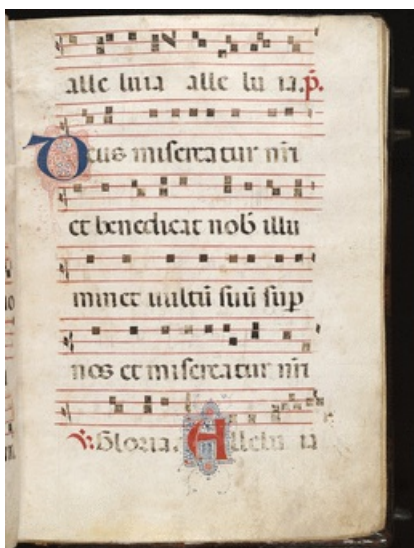 alle luia alle lu ia. p̄.
Deus misereatur nr̄i
et benedicat nob̄ illu
minet uultū suū sup
nos et misereatur nr̄i
℣. Gloria. Allelu ia